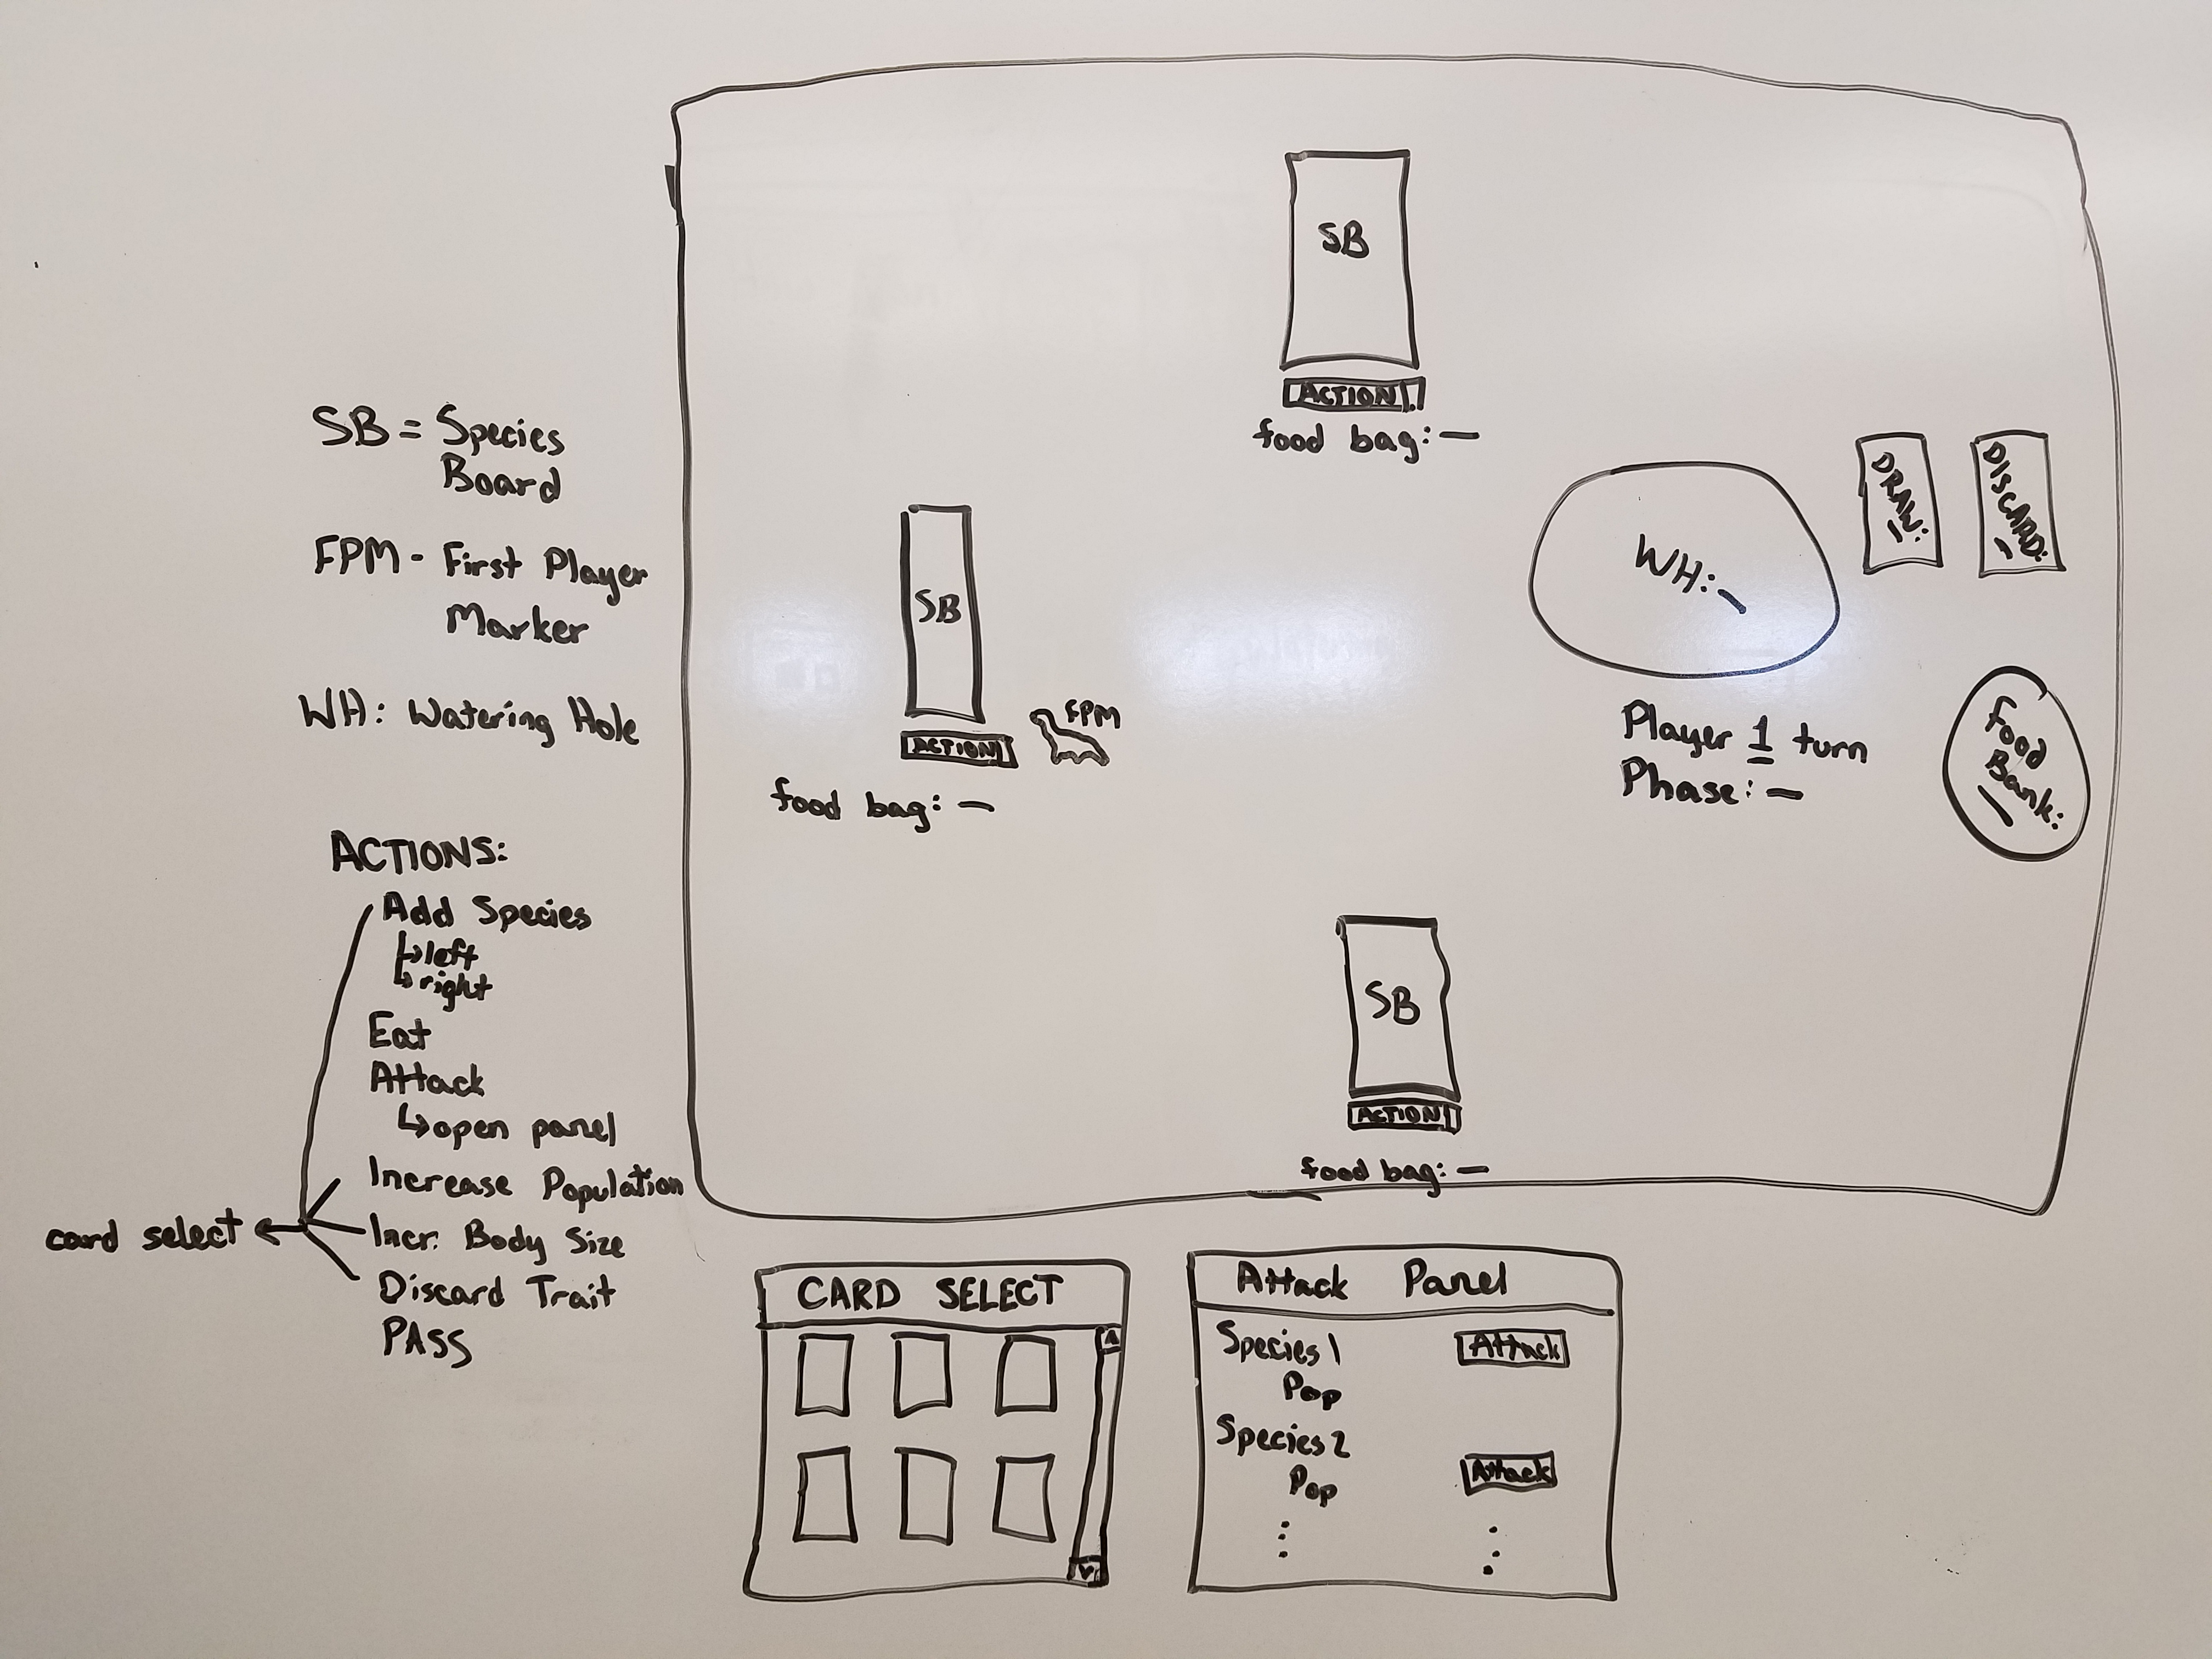 SB = Species
Board
FPM - First Player
Marker
WH: Watering Hole
ACTIONS:
Add Species
left
right
Eat
Attack
open panel
Increase Population
Incr. Body Size
Discard Trait
PASS
card select
SB
ACTION
food bag: —
SB
ACTION
FPM
food bag: —
WH: —
DRAW: —
DISCARD: —
Player 1 turn
Phase: —
Food
Bank:
—
SB
ACTION
food bag: —
CARD SELECT
Attack Panel
Species 1 Attack
Pop
Species 2
Pop Attack